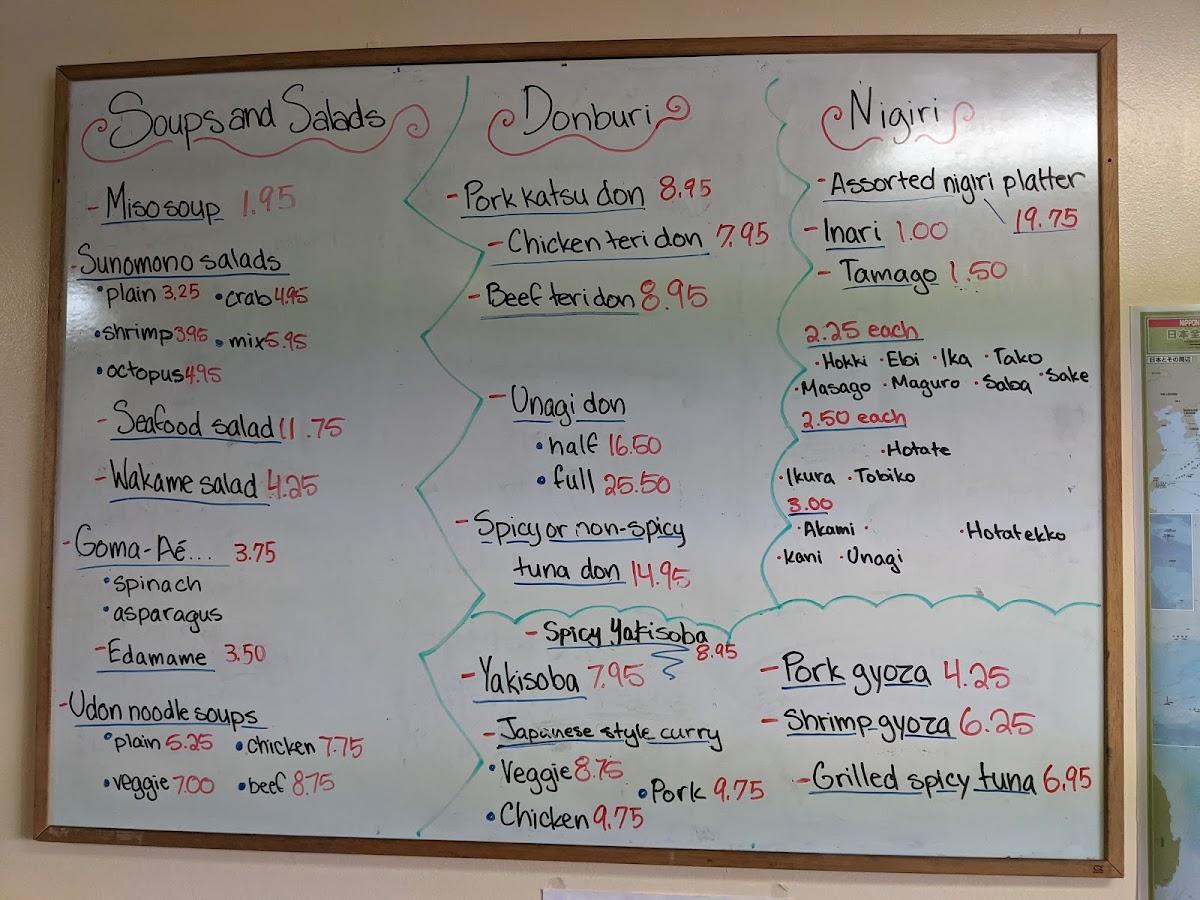 Soups and Salads
- Miso soup 1.95
- Sunomono salads
• plain 3.25 • crab 4.95
• shrimp 3.95 • mix 5.95
• octopus 4.95
- Seafood salad 11.75
- Wakame salad 4.25
- Goma-Aé... 3.75
• spinach
• asparagus
- Edamame 3.50
- Udon noodle soups
• plain 5.25 • chicken 7.75
• veggie 7.00 • beef 8.75
Donburi
- Pork katsu don 8.95
- Chicken teri don 7.95
- Beef teri don 8.95
- Unagi don
• half 16.50
• full 25.50
- Spicy or non-spicy
tuna don 14.95
Nigiri
- Assorted nigiri platter
19.75
- Inari 1.00
- Tamago 1.50
2.25 each
• Hokki • Ebi • Ika • Tako
• Masago • Maguro • Saba • Sake
2.50 each
• Hotate
• Ikura • Tobiko
3.00
• Akami • • Hotatekko
• Kani • Unagi
- Spicy Yakisoba
8.95
- Yakisoba 7.95
- Japanese style curry
• Veggie 8.75
• Pork 9.75
• Chicken 9.75
- Pork gyoza 4.25
- Shrimp gyoza 6.25
- Grilled spicy tuna 6.95
NIPPON
日本全
日本とその周辺